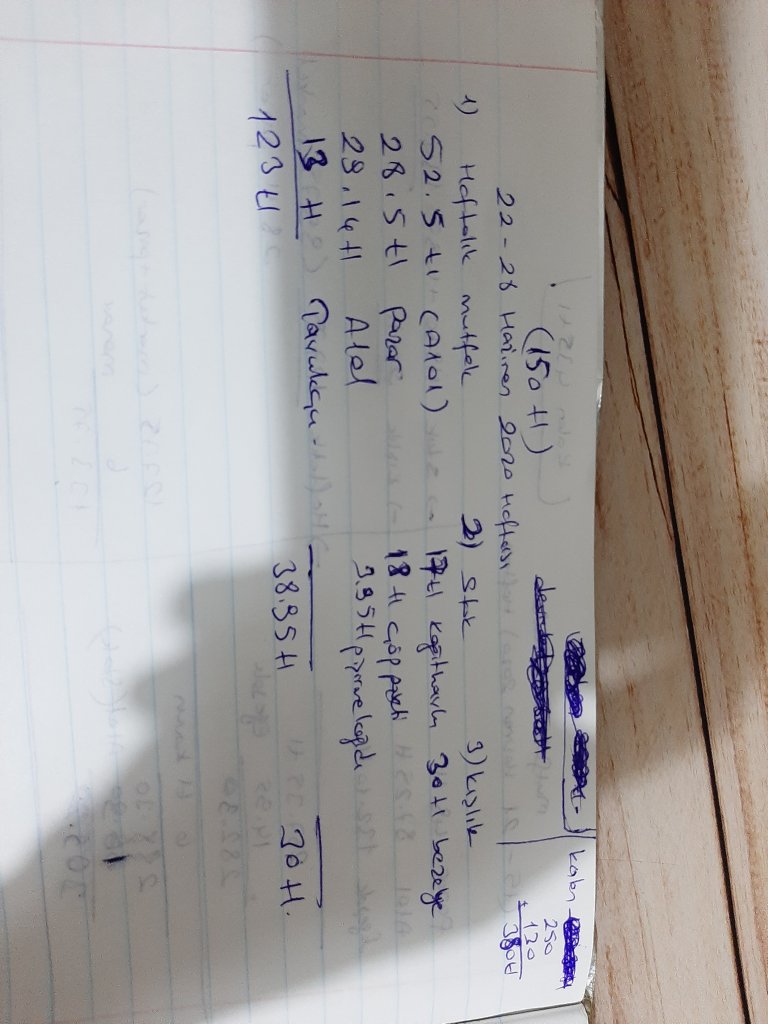 kalan
250
+ 130
380 tl
(150 tl)
22-28 Haziran 2020 Haftası
1) Haftalık mutfak
52.5 tl (A101)
28.5 tl pazar
29.14 tl A101
13 tl Tavukçu
123 tl
2) Stok
17 tl kağıt havlu
18 tl çöp poşeti
3.95 tl pişirme kağıdı
38.95 tl
3) Kışlık
30 tl bezelye
30 tl.